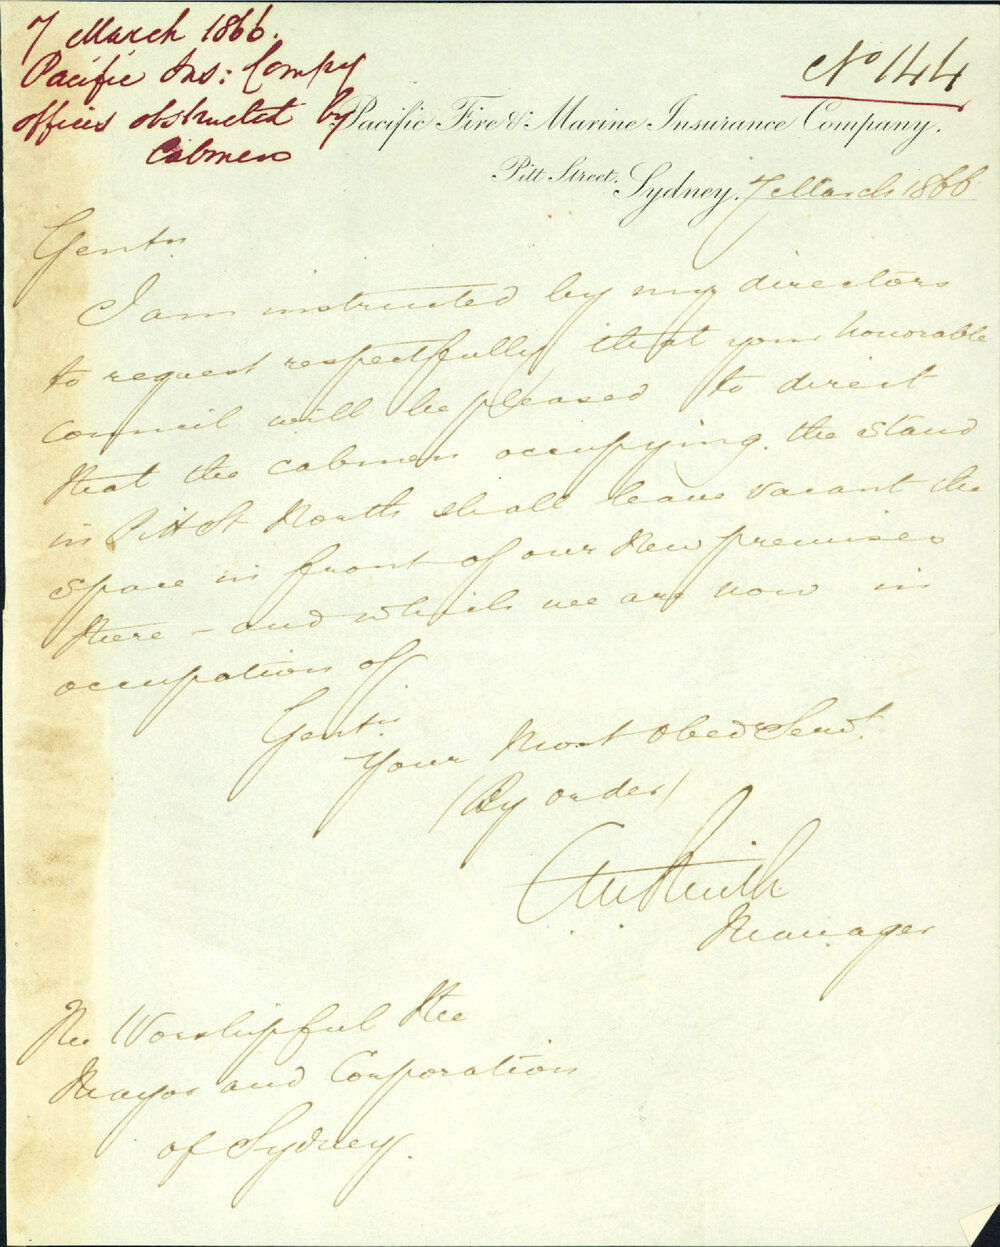 7 March 1866.
Pacific Ins: Compy
offices obstructed by
Cabmen
No 144
Pacific Fire & Marine Insurance Company.
Pitt Street, Sydney, 7 March 1866
Gentn
I am instructed by my directors
to request respectfully that your honorable
Council will be pleased to direct
that the cabmen occupying the stand
in Pitt St North shall leave vacant the
space in front of our New premises
there - and which we are now in
occupation of
Gentn
Your Most Obed Servt
(By order)
Smith
Manager
The Worshipful the
Mayor and Corporation
of Sydney.